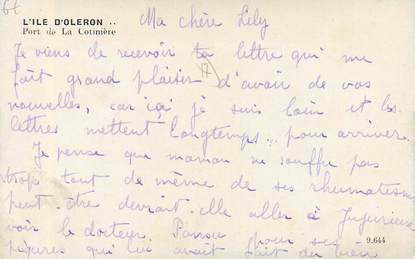 L'ILE D'OLERON ..
Port de La Cotinière
Ma chère Lily
Je viens de recevoir ta lettre qui me
fait grand plaisir d'avoir de vos
nouvelles, car ici je suis loin et les
lettres mettent longtemps... pour arriver.
Je pense que maman ne souffre pas
trop tout de même de ses rhumatismes
peut-être devrait-elle aller à Jujurieux
voir le docteur. pour ses
piqures qui lui avait fait du bien
9.644